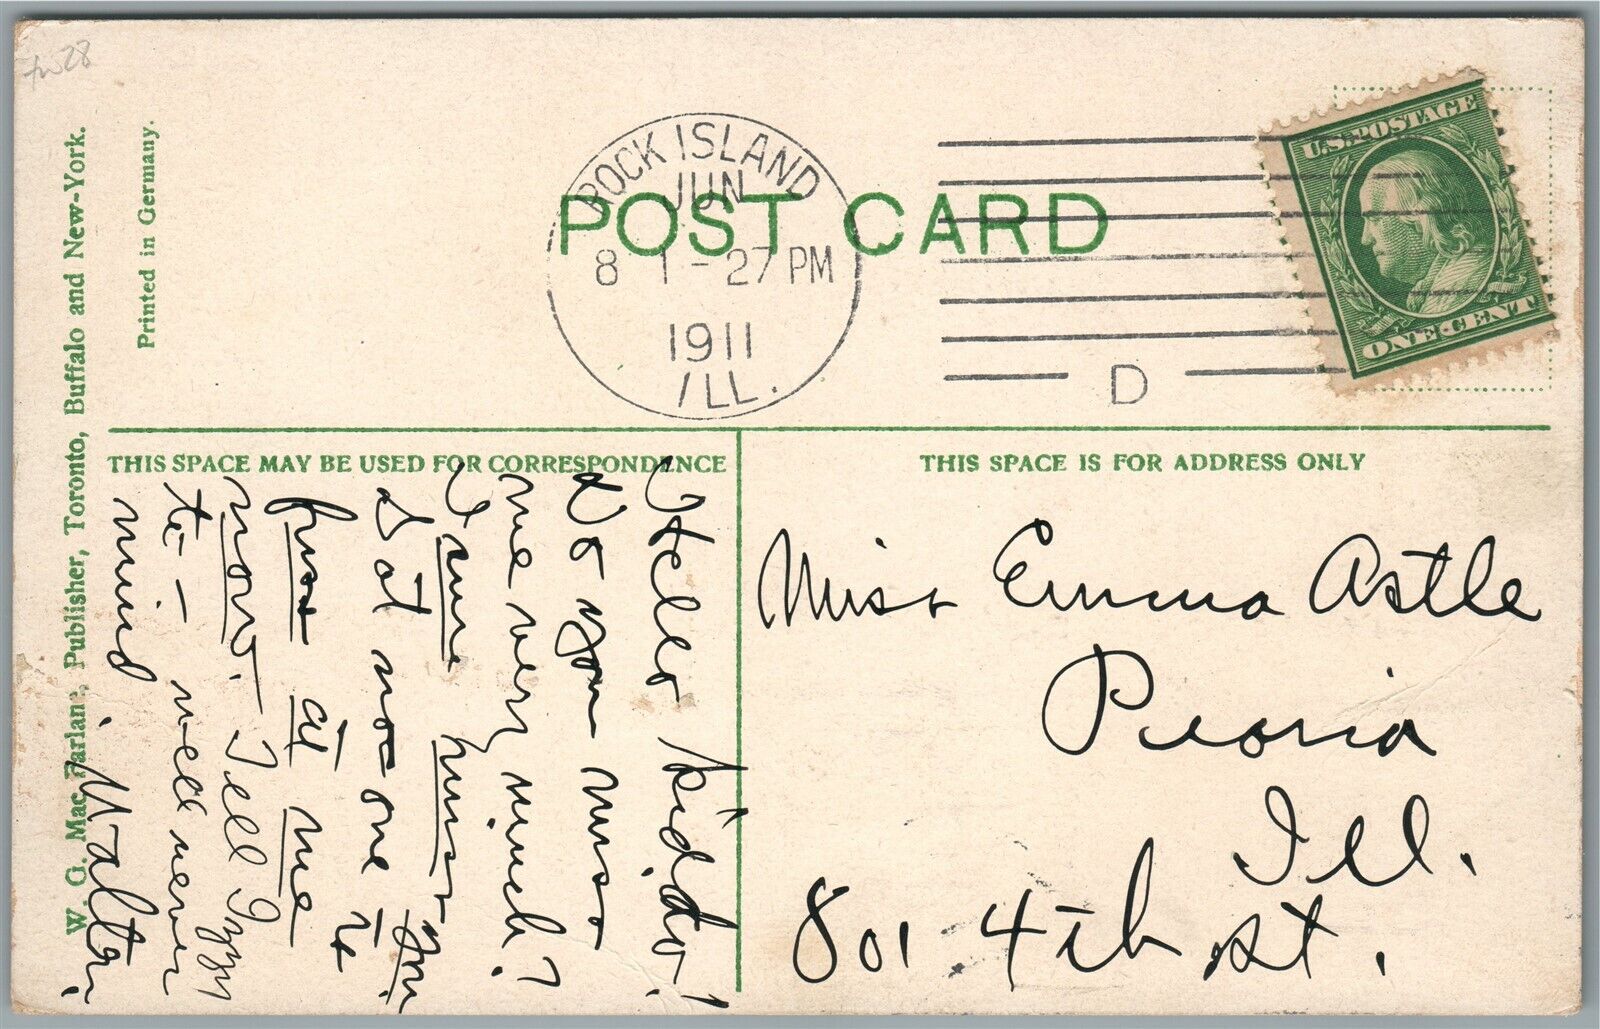 fw28
W. G. Mac Farlane, Publisher, Toronto, Buffalo and New-York.
Printed in Germany.
POST CARD
ROCK ISLAND
JUN
8 1-27 PM
1911
ILL.
D
U.S. POSTAGE
ONE CENT
THIS SPACE MAY BE USED FOR CORRESPONDENCE
THIS SPACE IS FOR ADDRESS ONLY
Hello kiddo!
Do you miss
me very much?
I am hums you
Sat no one is
fuss at me
now. Tell Izzy
to – well never
mind. Walter.
Miss Emma Astle
Peoria
Ill.
801 4th st.